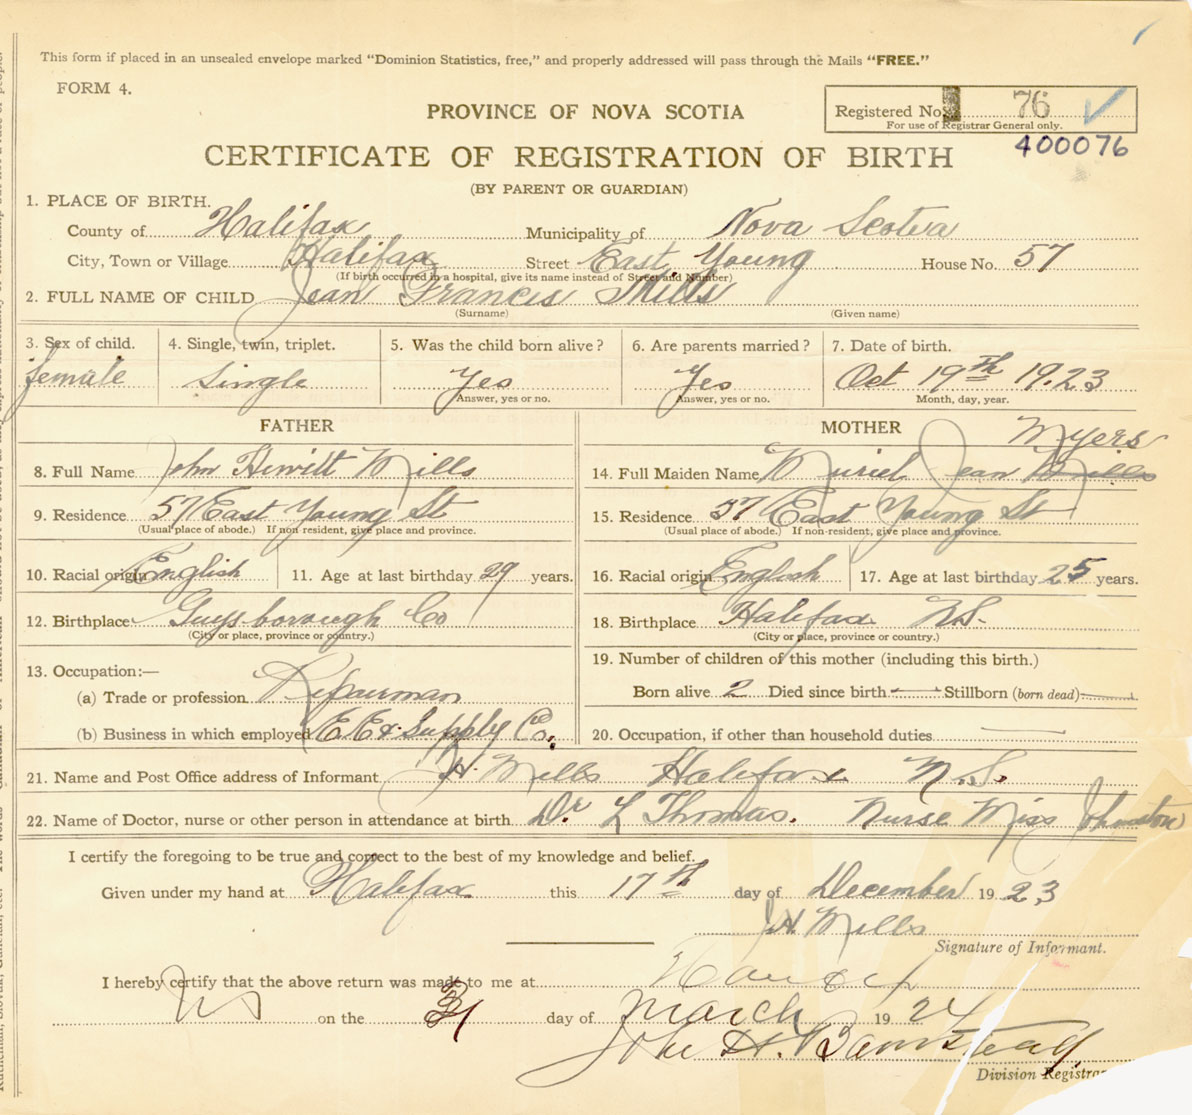 This form if placed in an unsealed envelope marked “Dominion Statistics, free,” and properly addressed will pass through the Mails “FREE.”
FORM 4.
PROVINCE OF NOVA SCOTIA
Registered No. 76
For use of Registrar General only.
400076
CERTIFICATE OF REGISTRATION OF BIRTH
(BY PARENT OR GUARDIAN)
1. PLACE OF BIRTH.
County of Halifax Municipality of Nova Scotia
City, Town or Village Halifax Street East Young House No. 57
(If birth occurred in a hospital, give its name instead of Street and Number)
2. FULL NAME OF CHILD Jean Francis Mills
(Surname) (Given name)
3. Sex of child. 4. Single, twin, triplet. 5. Was the child born alive? 6. Are parents married? 7. Date of birth.
female Single Yes Yes Oct 19th 1923
Answer, yes or no. Answer, yes or no. Month, day, year.
FATHER MOTHER
Myers
8. Full Name John Hewitt Mills 14. Full Maiden Name Muriel Jean Mills
9. Residence 57 East Young St 15. Residence 57 East Young St
(Usual place of abode.) If non resident, give place and province. (Usual place of abode.) If non-resident, give place and province.
10. Racial origin English 11. Age at last birthday 29 years. 16. Racial origin English 17. Age at last birthday 25 years.
12. Birthplace Guysborough Co 18. Birthplace Halifax N.S.
(City or place, province or country.) (City or place, province or country.)
13. Occupation:— 19. Number of children of this mother (including this birth.)
(a) Trade or profession Repairman Born alive 2 Died since birth — Stillborn (born dead) —
(b) Business in which employed Supply Co. 20. Occupation, if other than household duties —
21. Name and Post Office address of Informant H. Mills Halifax N.S.
22. Name of Doctor, nurse or other person in attendance at birth Dr L Thomas. Nurse Miss Johnston
I certify the foregoing to be true and correct to the best of my knowledge and belief.
Given under my hand at Halifax this 17th day of December 1923
J.H. Mills
Signature of Informant.
I hereby certify that the above return was made to me at
NS on the day of March 1924
John H.
Division Registrar